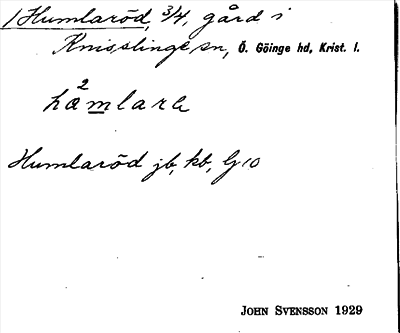 1 Humlaröd, 3/4, gård i
Knisslinge sn, Ö. Göinge hd, Krist. l.
Humlaröd jb, kb,
JOHN SVENSSON 1929